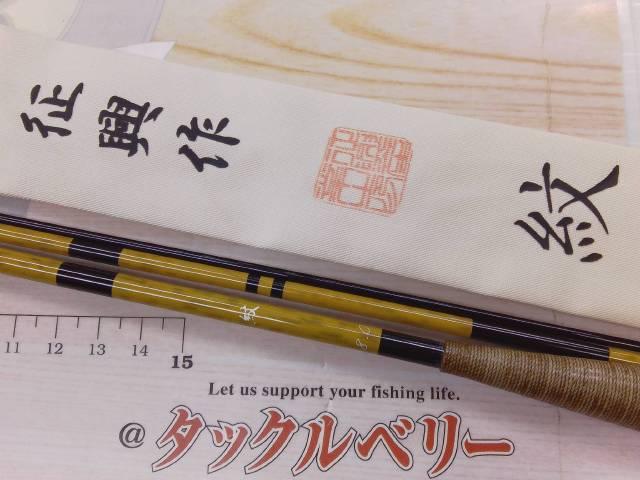 征興作
紋
紋 8.0
11 12 13 14 15
Let us support your fishing life.
@タックルベリー